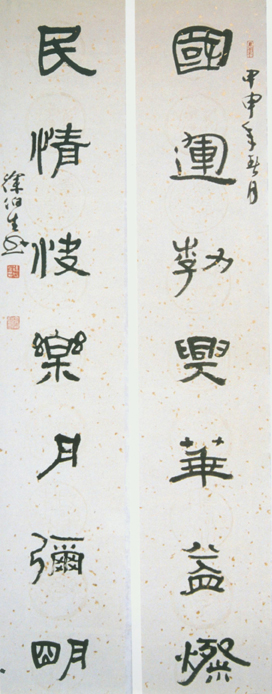 甲申年
國運勃興華益燦
民情快樂月彌明
徐伯生书